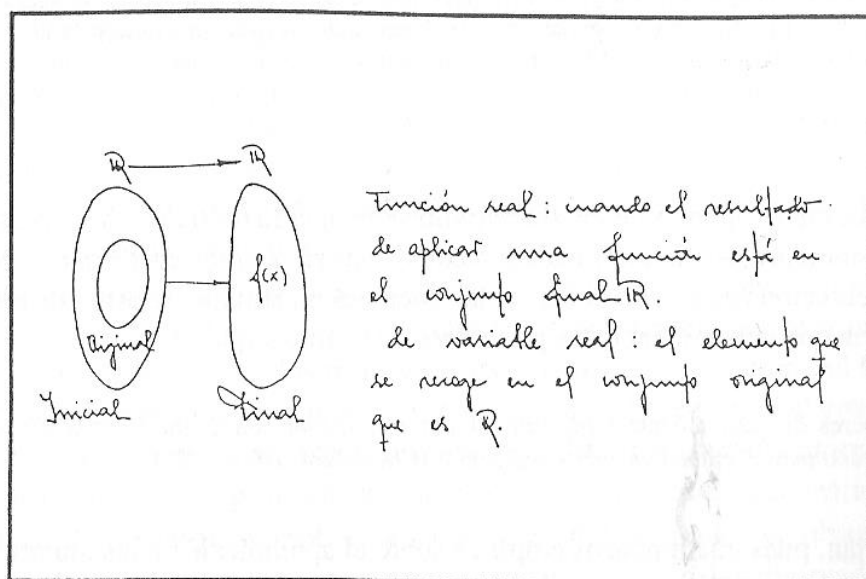 ℝ → ℝ
f(x)
Original
Inicial
Final
Función real: cuando el resultado
de aplicar una función está en
el conjunto final ℝ.
de variable real: el elemento que
se recoge en el conjunto original
que es ℝ.